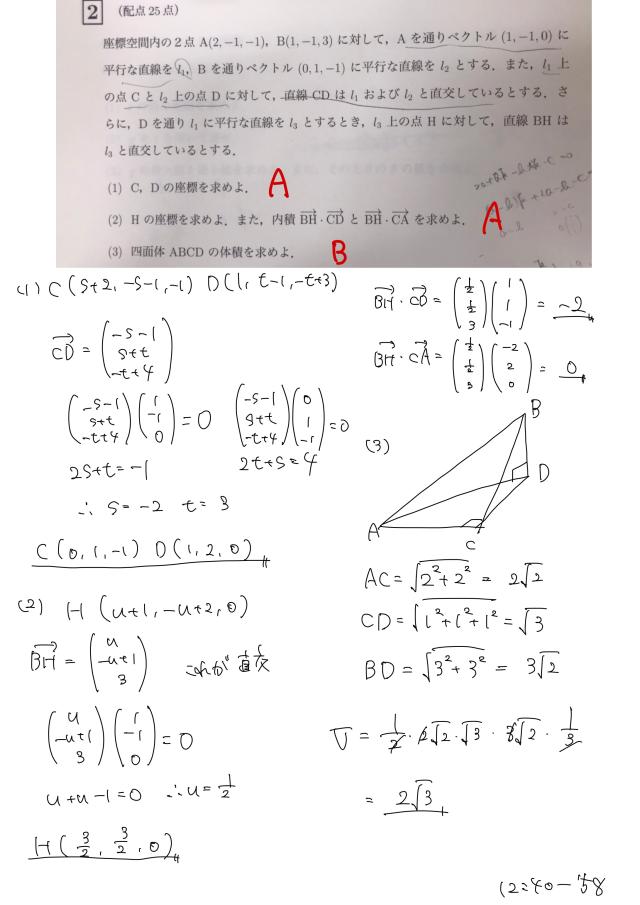 2 (配点 25点)
座標空間内の2点 A(2, -1, -1), B(1, -1, 3) に対して, A を通りベクトル (1, -1, 0) に
平行な直線を l₁, B を通りベクトル (0, 1, -1) に平行な直線を l₂ とする. また, l₁ 上
の点 C と l₂ 上の点 D に対して, 直線 CD は l₁ および l₂ と直交しているとする. さ
らに, D を通り l₁ に平行な直線を l₃ とするとき, l₃ 上の点 H に対して, 直線 BH は
l₃ と直交しているとする.
(1) C, D の座標を求めよ. A
(2) H の座標を求めよ. また, 内積 BH・CD と BH・CA を求めよ. A
(3) 四面体 ABCD の体積を求めよ. B
(1) C(s+2, -s-1, -1) D(1, t-1, -t+3)
CD = (-s-1 s+t -t+4)
(-s-1 s+t -t+4)(1 -1 0) = 0 (-s-1 s+t -t+4)(0 1 -1) = 0
2s+t=-1 2t+s=4
∴ s=-2 t=3
C(0, 1, -1) D(1, 2, 0)
(2) H (u+1, -u+2, 0)
BH = (u -u+1 3) これが直交
(u -u+1 3)(1 -1 0) = 0
u+u-1=0 ∴u=1/2
H(3/2, 3/2, 0)
BH・CD = (1/2 1/2 3)(1 1 -1) = -2
BH・CA = (1/2 1/2 3)(-2 2 0) = 0
(3)
B
D
A
C
AC=√2²+2² = 2√2
CD=√1²+1²+1² = √3
BD=√3²+3² = 3√2
V = 1/2・2√2・√3・3√2・1/3
= 2√3
12:40-58